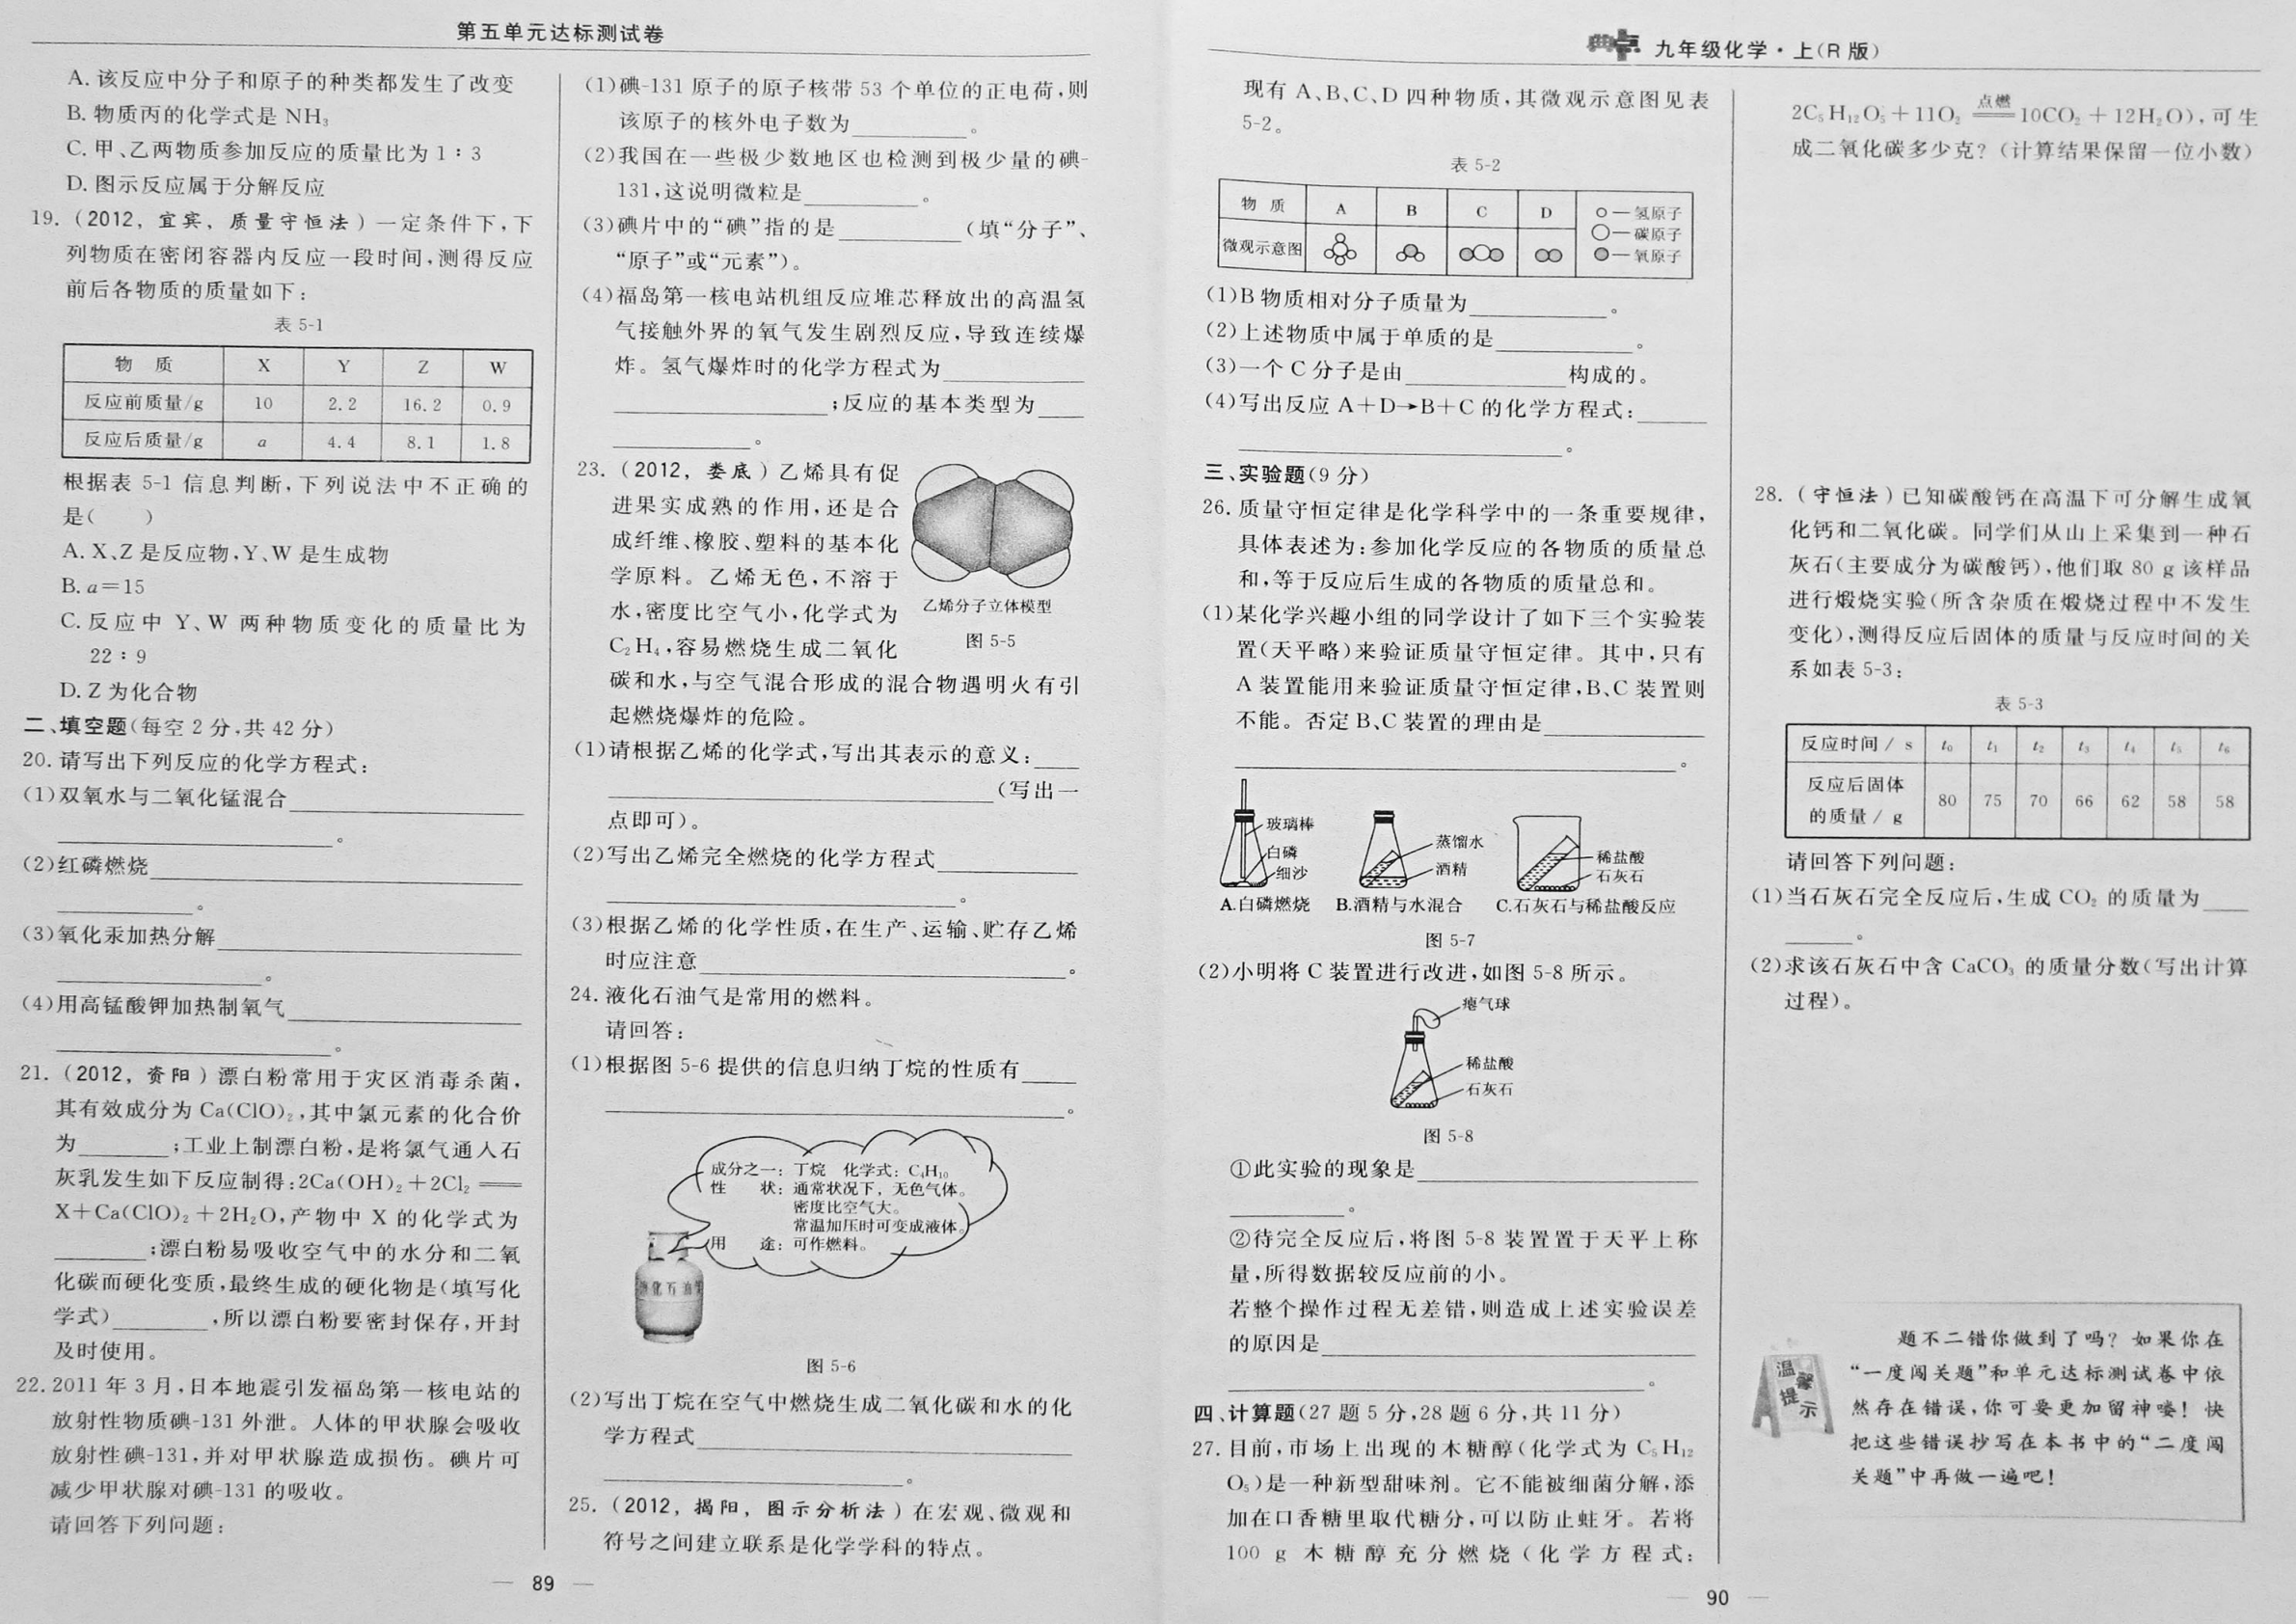 第五单元达标测试卷
A. 该反应中分子和原子的种类都发生了改变
B. 物质丙的化学式是 NH₃
C. 甲、乙两物质参加反应的质量比为 1∶3
D. 图示反应属于分解反应
19. (2012, 宜宾, 质量守恒法) 一定条件下,下
列物质在密闭容器内反应一段时间,测得反应
前后各物质的质量如下:
表 5-1
物 质 X Y Z W
反应前质量/g 10 2.2 16.2 0.9
反应后质量/g a 4.4 8.1 1.8
根据表 5-1 信息判断,下列说法中不正确的
是( )
A. X、Z 是反应物,Y、W 是生成物
B. a=15
C. 反应中 Y、W 两种物质变化的质量比为
22∶9
D. Z 为化合物
二、填空题(每空 2 分,共 42 分)
20. 请写出下列反应的化学方程式:
(1)双氧水与二氧化锰混合________
________。
(2)红磷燃烧________
________。
(3)氧化汞加热分解________
________。
(4)用高锰酸钾加热制氧气________
________。
21. (2012, 资阳) 漂白粉常用于灾区消毒杀菌,
其有效成分为 Ca(ClO)₂,其中氯元素的化合价
为________;工业上制漂白粉,是将氯气通入石
灰乳发生如下反应制得:2Ca(OH)₂+2Cl₂ ══
X+Ca(ClO)₂+2H₂O,产物中 X 的化学式为
________;漂白粉易吸收空气中的水分和二氧
化碳而硬化变质,最终生成的硬化物是(填写化
学式)________,所以漂白粉要密封保存,开封
及时使用。
22. 2011 年 3 月,日本地震引发福岛第一核电站的
放射性物质碘-131 外泄。人体的甲状腺会吸收
放射性碘-131,并对甲状腺造成损伤。碘片可
减少甲状腺对碘-131 的吸收。
请回答下列问题:
(1)碘-131 原子的原子核带 53 个单位的正电荷,则
该原子的核外电子数为________。
(2)我国在一些极少数地区也检测到极少量的碘-
131,这说明微粒是________。
(3)碘片中的“碘”指的是________(填“分子”、
“原子”或“元素”)。
(4)福岛第一核电站机组反应堆芯释放出的高温氢
气接触外界的氧气发生剧烈反应,导致连续爆
炸。氢气爆炸时的化学方程式为________
________;反应的基本类型为____
________。
23. (2012, 娄底) 乙烯具有促
进果实成熟的作用,还是合
成纤维、橡胶、塑料的基本化
学原料。乙烯无色,不溶于
水,密度比空气小,化学式为
C₂H₄,容易燃烧生成二氧化
碳和水,与空气混合形成的混合物遇明火有引
起燃烧爆炸的危险。
乙烯分子立体模型
图 5-5
(1)请根据乙烯的化学式,写出其表示的意义:____
________(写出一
点即可)。
(2)写出乙烯完全燃烧的化学方程式________
________。
(3)根据乙烯的化学性质,在生产、运输、贮存乙烯
时应注意________。
24. 液化石油气是常用的燃料。
请回答:
(1)根据图 5-6 提供的信息归纳丁烷的性质有____
________。
成分之一: 丁烷 化学式: C₄H₁₀
性 状: 通常状况下, 无色气体。
密度比空气大。
常温加压时可变成液体。
用 途: 可作燃料。
液化石油气
图 5-6
(2)写出丁烷在空气中燃烧生成二氧化碳和水的化
学方程式________
________。
25. (2012, 揭阳, 图示分析法) 在宏观、微观和
符号之间建立联系是化学学科的特点。
— 89 —
典点 九年级化学·上(R 版)
现有 A、B、C、D 四种物质,其微观示意图见表
5-2。
表 5-2
物 质 A B C D
微观示意图
○—氢原子
○—碳原子
○—氧原子
(1)B 物质相对分子质量为________。
(2)上述物质中属于单质的是________。
(3)一个 C 分子是由________构成的。
(4)写出反应 A+D→B+C 的化学方程式:____
________。
三、实验题(9 分)
26. 质量守恒定律是化学科学中的一条重要规律,
具体表述为:参加化学反应的各物质的质量总
和,等于反应后生成的各物质的质量总和。
(1)某化学兴趣小组的同学设计了如下三个实验装
置(天平略)来验证质量守恒定律。其中,只有
A 装置能用来验证质量守恒定律,B、C 装置则
不能。否定 B、C 装置的理由是________
________。
玻璃棒
白磷
细沙
蒸馏水
酒精
稀盐酸
石灰石
A.白磷燃烧 B.酒精与水混合 C.石灰石与稀盐酸反应
图 5-7
(2)小明将 C 装置进行改进,如图 5-8 所示。
瘪气球
稀盐酸
石灰石
图 5-8
①此实验的现象是________
________。
②待完全反应后,将图 5-8 装置置于天平上称
量,所得数据较反应前的小。
若整个操作过程无差错,则造成上述实验误差
的原因是________
________。
四、计算题(27 题 5 分,28 题 6 分,共 11 分)
27. 目前,市场上出现的木糖醇(化学式为 C₅H₁₂
O₅)是一种新型甜味剂。它不能被细菌分解,添
加在口香糖里取代糖分,可以防止蛀牙。若将
100 g 木糖醇充分燃烧(化学方程式:
2C₅H₁₂O₅+11O₂ 点燃══ 10CO₂+12H₂O),可生
成二氧化碳多少克?(计算结果保留一位小数)
28. (守恒法) 已知碳酸钙在高温下可分解生成氧
化钙和二氧化碳。同学们从山上采集到一种石
灰石(主要成分为碳酸钙),他们取 80 g 该样品
进行煅烧实验(所含杂质在煅烧过程中不发生
变化),测得反应后固体的质量与反应时间的关
系如表 5-3:
表 5-3
反应时间 / s t₀ t₁ t₂ t₃ t₄ t₅ t₆
反应后固体
的质量 / g 80 75 70 66 62 58 58
请回答下列问题:
(1)当石灰石完全反应后,生成 CO₂ 的质量为____
____。
(2)求该石灰石中含 CaCO₃ 的质量分数(写出计算
过程)。
温馨提示
题不二错你做到了吗? 如果你在
“一度闯关题”和单元达标测试卷中依
然存在错误,你可要更加留神喽! 快
把这些错误抄写在本书中的“二度闯
关题”中再做一遍吧!
— 90 —